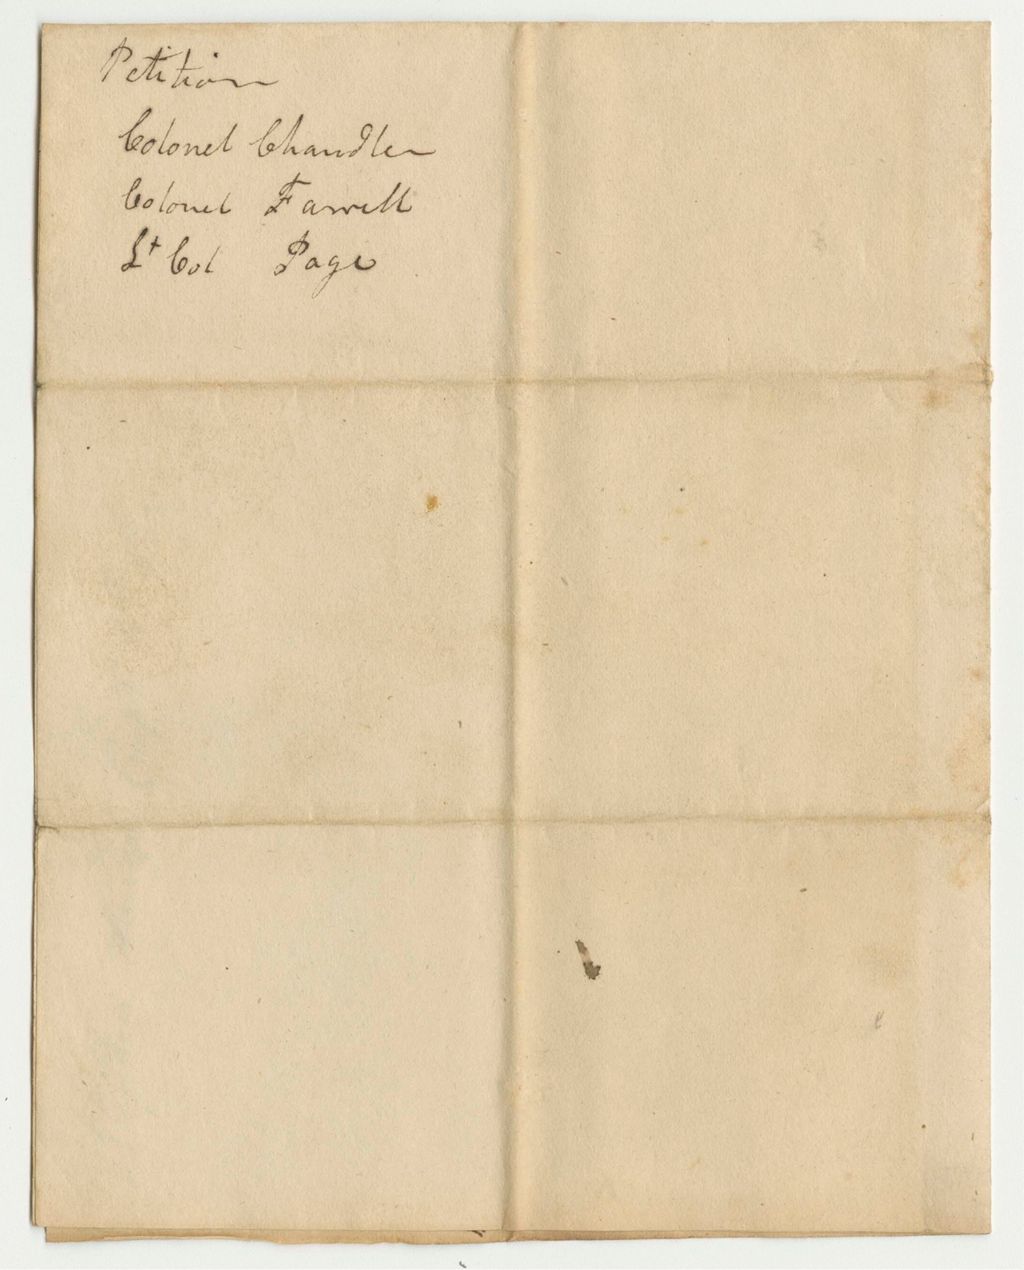 Petition
Colonel Chandler
Colonel Farwell
Lt Col Page